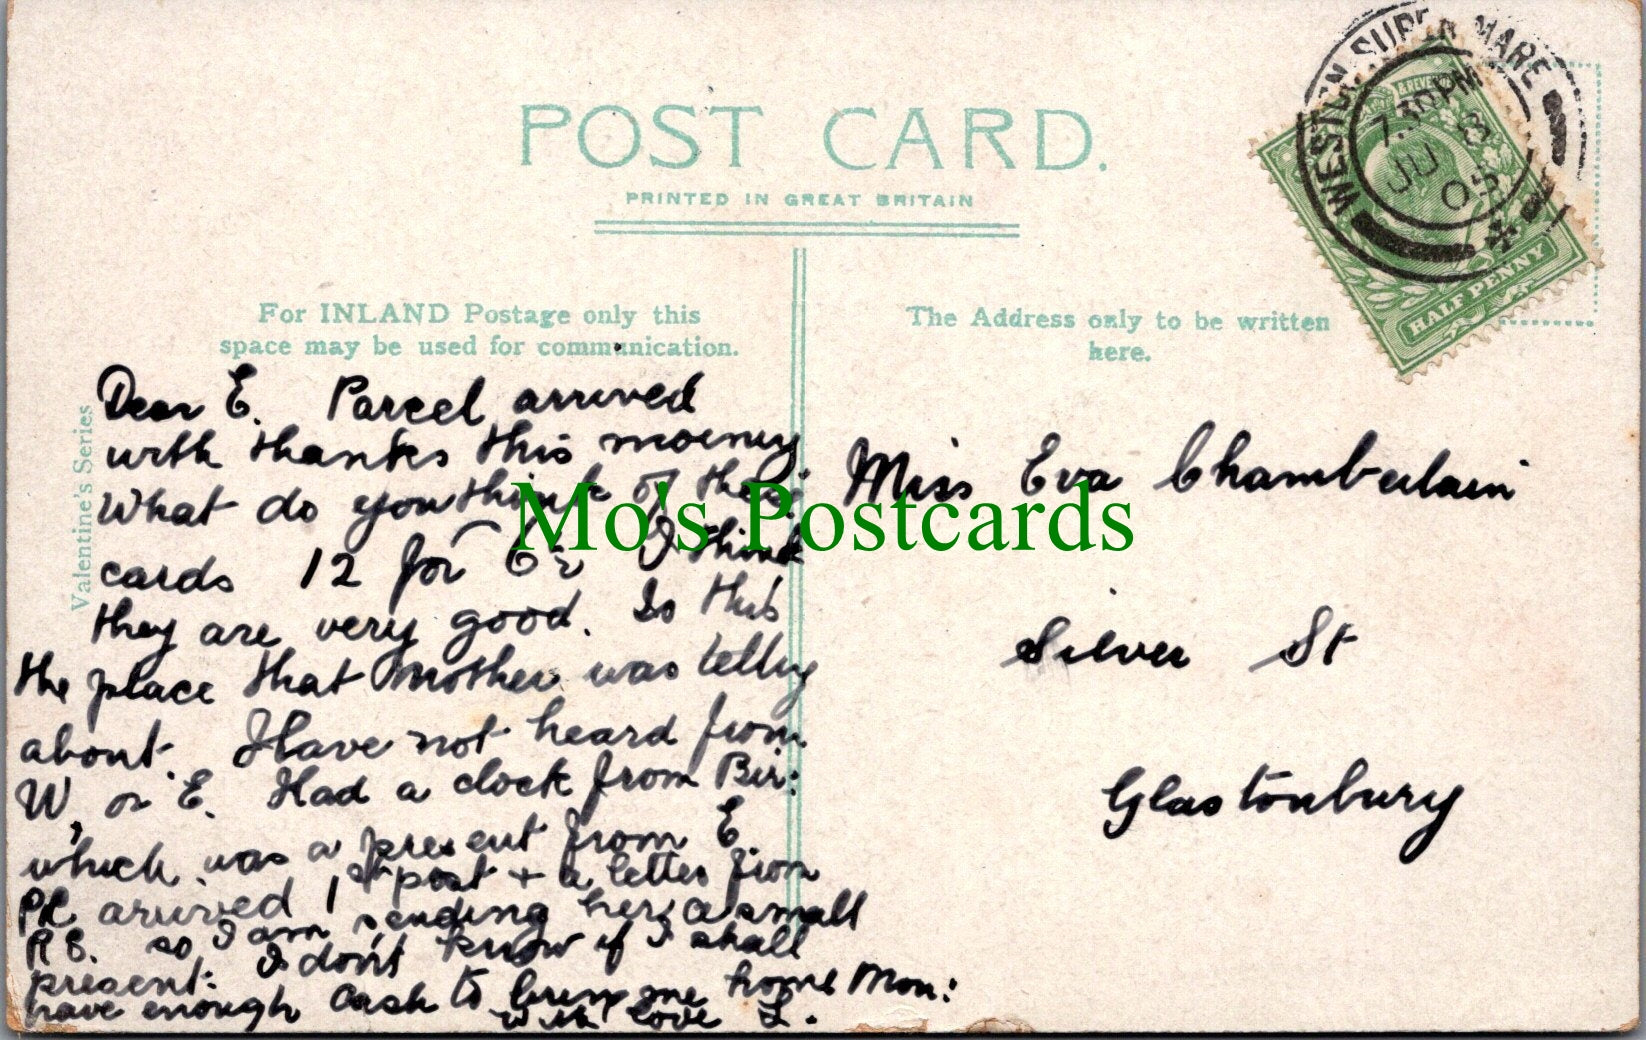 POST CARD.
PRINTED IN GREAT BRITAIN
For INLAND Postage only this
space may be used for communication.
The Address only to be written
here.
Valentine's Series
WESTON-SUPER-MARE
7.30 PM
JU 8
05
HALF PENNY
Dear E. Parcel arrived
with thanks this morning
What do you think of these
cards 12 for 6½ I think
they are very good. Is this
the place that Mother was telling
about. I Have not heard from
W, or E. Had a clock from Bir:
which was a present from E
arrived 1st post + a letter from
R E. so I am sending her a small
present: I don't know if I shall
have enough Cash to bring me home Mon:
with love L.
Miss Eva Chamberlain
Silver St
Glastonbury
Mo's Postcards